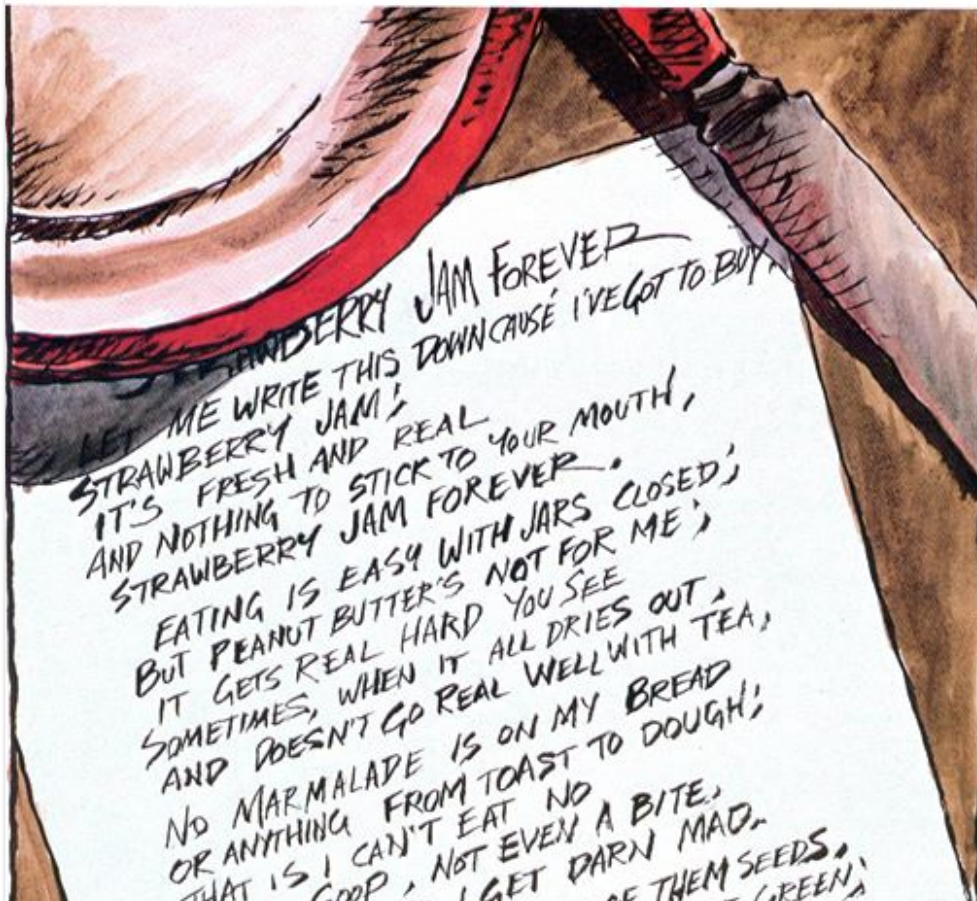 STRAWBERRY JAM FOREVER
LET ME WRITE THIS DOWN CAUSE I'VE GOT TO BUY,
STRAWBERRY JAM;
IT'S FRESH AND REAL
AND NOTHING TO STICK TO YOUR MOUTH,
STRAWBERRY JAM FOREVER.
EATING IS EASY WITH JARS CLOSED;
BUT PEANUT BUTTER'S NOT FOR ME;
IT GETS REAL HARD YOU SEE
SOMETIMES, WHEN IT ALL DRIES OUT,
AND DOESN'T GO REAL WELL WITH TEA,
NO MARMALADE IS ON MY BREAD
OR ANYTHING FROM TOAST TO DOUGH;
THAT IS I CAN'T EAT NO
GOOP, NOT EVEN A BITE,
I GET DARN MAD.
THEM SEEDS,
GREEN;